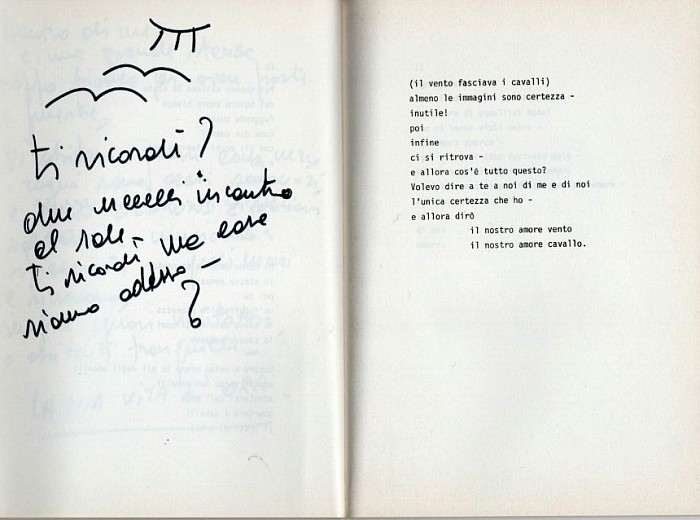 ti ricordi?
due uccelli incontro
al sole -
ti ricordi ma cosa
siamo adesso -
?
(il vento fasciava i cavalli)
almeno le immagini sono certezza -
inutile!
poi
infine
ci si ritrova -
e allora cos'è tutto questo?
Volevo dire a te a noi di me e di noi
l'unica certezza che ho -
e allora dirò
il nostro amore vento
il nostro amore cavallo.